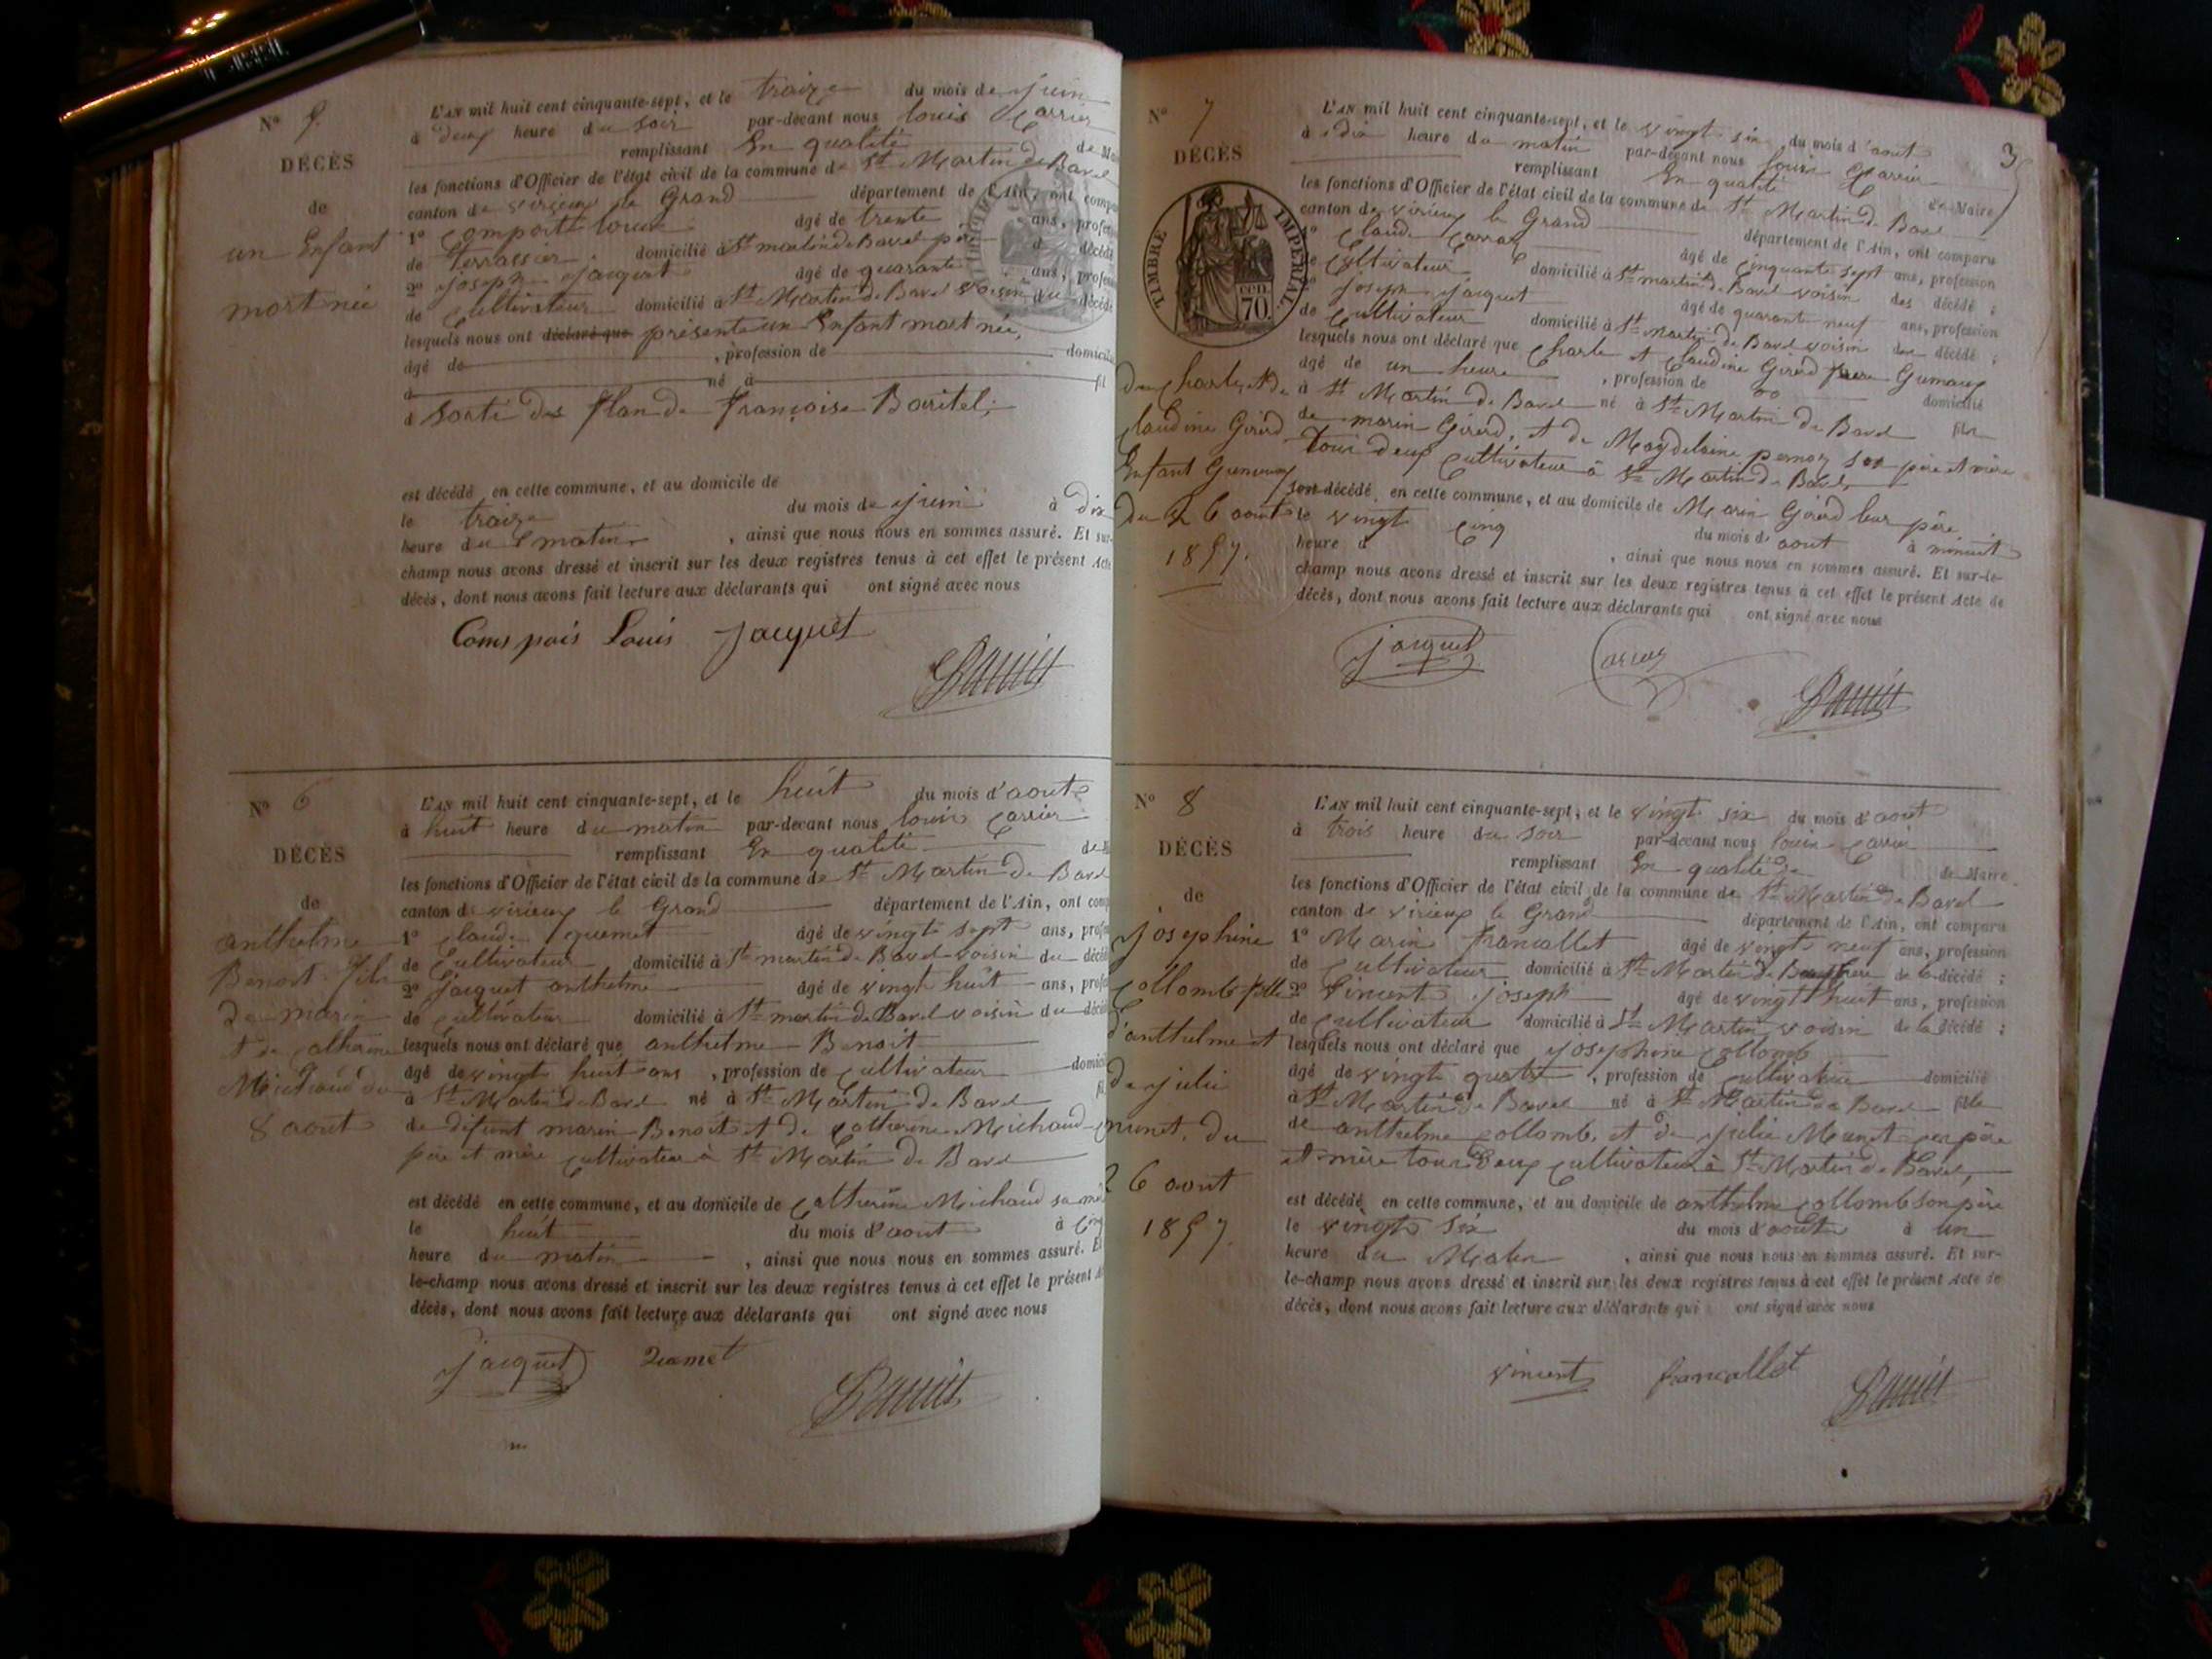 N° 5.
DÉCÈS
de
un Enfant
mort née
L'AN mil huit cent cinquante-sept, et le traize du mois de juin
à deux heure du soir par-devant nous louis Carrier
remplissant En qualité de Mai
les fonctions d'Officier de l'état civil de la commune de St Martin de Bavel
canton de virieux le Grand département de l'Ain, ont compa
1° louis âgé de trente ans, profes
de terrassier domicilié à St martin de Bavel père d décédé
2° Joseph Jacquet âgé de quarante ans, profess
de Cultivateur domicilié à St Martin de Bavel voisin du décédé
lesquels nous ont déclaré que présente un Enfant mort née,
âgé de , profession de domicili
à né à fil
d sorti des flan de françoise Baritel;
est décédé en cette commune, et au domicile de
le traize du mois de juin à dix
heure du matin , ainsi que nous nous en sommes assuré. Et sur-
champ nous avons dressé et inscrit sur les deux registres tenus à cet effet le présent Acte
décès, dont nous avons fait lecture aux déclarants qui ont signé avec nous
Louis Jacquet
N° 6
DÉCÈS
de
anthelme
Benoit fils
de marin
et de catherine
Michaud du
8 aout
L'AN mil huit cent cinquante-sept, et le huit du mois d'aout
à huit heure du matin par-devant nous louis Carrier
remplissant En qualité de M
les fonctions d'Officier de l'état civil de la commune de St Martin de Bavel
canton de virieux le Grand département de l'Ain, ont comp
1° claude quemet âgé de vingt sept ans, profes
de Cultivateur domicilié à St martin de Bavel voisin du décéd
2° jacquet anthelme âgé de vingt huit ans, profes
de Cultivateur domicilié à St martin de Bavel voisin du décéd
lesquels nous ont déclaré que anthelme Benoit
âgé de vingt huit ans , profession de cultivateur domici
à St Martin de Bavel né à St Martin de Bavel fil
de défunt marin Benoit et de Catherine Michaud
père et mère cultivateur à St Martin de Bavel
est décédé en cette commune, et au domicile de Catherine Michaud sa mè
le huit du mois d'aout à cinq
heure du matin , ainsi que nous nous en sommes assuré. Et
le-champ nous avons dressé et inscrit sur les deux registres tenus à cet effet le présent
décès, dont nous avons fait lecture aux déclarants qui ont signé avec nous
jacquet
3
N° 7
DÉCÈS
TIMBRE IMPÉRIAL.
CEN.
70.
de charle et de
claudine Girerd
Enfant Gumeaux
du 26 aout
1857.
L'AN mil huit cent cinquante-sept, et le vingt six du mois d'aout
à dix heure du matin par-devant nous louis Carrier
remplissant En qualité de Maire
les fonctions d'Officier de l'état civil de la commune de St Martin de Bavel
canton de virieux le Grand département de l'Ain, ont comparu
1° claude Carraz âgé de cinquante sept ans, profession
de Cultivateur domicilié à St martin de Bavel voisin des décédé ;
2° joseph jacquet âgé de quarante neuf ans, profession
de Cultivateur domicilié à St Martin de Bavel voisin des décédé ;
lesquels nous ont déclaré que Charle et Claudine Girerd frere Gumaux
âgé de un heure , profession de domicilié
à St Martin de Bavel né à St Martin de Bavel fils
de marin Girerd, et de Magdelaine pernoz ses père et mère
Tous deux cultivateur à St Martin de Bavel,
sont décédé en cette commune, et au domicile de Marin Girerd leur père
le vingt cinq du mois d'aout à minuit
heure d , ainsi que nous nous en sommes assuré. Et sur-le-
champ nous avons dressé et inscrit sur les deux registres tenus à cet effet le présent Acte de
décès, dont nous avons fait lecture aux déclarants qui ont signé avec nous
jacquet Carraz
N° 8
DÉCÈS
de
josephine
Collomb fille
d'anthelme et
de julie
munet, du
26 aout
1857.
L'AN mil huit cent cinquante-sept, et le vingt six du mois d'aout
à trois heure du soir par-devant nous louis Carrier
remplissant En qualité de de Maire
les fonctions d'Officier de l'état civil de la commune de St Martin de Bavel
canton de virieux le Grand département de l'Ain, ont comparu
1° Marin francallet âgé de vingt neuf ans, profession
de Cultivateur domicilié à St Martin de de la décédé ;
2° Vincent joseph âgé de vingt huit ans, profession
de Cultivateur domicilié à St Martin voisin de la décédé ;
lesquels nous ont déclaré que josephine Collomb
âgé de vingt quatre , profession de Cultivatrice domicilié
à St Martin de Bavel né à St Martin de Bavel fille
de anthelme Collomb, et de julie Munet ces père
et mère tous deux cultivateur à St Martin de Bavel,
est décédé en cette commune, et au domicile de anthelme Collomb son père
le vingt six du mois d'aout à un
heure du Matin , ainsi que nous nous en sommes assuré. Et sur-
le-champ nous avons dressé et inscrit sur les deux registres tenus à cet effet le présent Acte de
décès, dont nous avons fait lecture aux déclarants qui ont signé avec nous
Vincent francallet